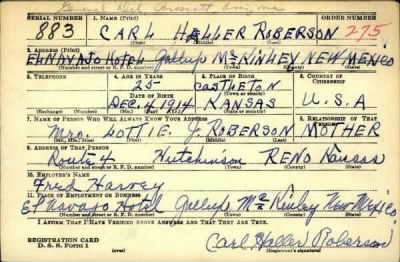 SERIAL NUMBER 1. NAME (Print) ORDER NUMBER
883 CARL HELLER ROBERSON 275
(First) (Middle) (Last)
2. ADDRESS (Print)
EL NAVAJO HOTEL Gallup McKINLEY, NEW MEXICO
(Number and street or R. F. D. number) (Town) (County) (State)
3. TELEPHONE 4. AGE IN YEARS 5. PLACE OF BIRTH 6. COUNTRY OF CITIZENSHIP
25 CASTLETON
DATE OF BIRTH
DEC. 4, 1914 KANSAS U.S.A
(Exchange) (Number) (Mo.) (Day) (Yr.) (State or country)
7. NAME OF PERSON WHO WILL ALWAYS KNOW YOUR ADDRESS 8. RELATIONSHIP OF THAT PERSON
Mrs. LOTTIE J. ROBERSON MOTHER
(Mr., Mrs., Miss) (First) (Middle) (Last)
9. ADDRESS OF THAT PERSON
Route 4 Hutchinson RENO Kansas
(Number and street or R. F. D. number) (Town) (County) (State)
10. EMPLOYER'S NAME
Fred Harvey
11. PLACE OF EMPLOYMENT OR BUSINESS
El Navajo Hotel Gallup McKinley New Mexico
(Number and street or R. F. D. number) (Town) (County) (State)
I AFFIRM THAT I HAVE VERIFIED ABOVE ANSWERS AND THAT THEY ARE TRUE.
REGISTRATION CARD
D. S. S. Form 1 (over) Carl Heller Roberson
(Registrant's signature)